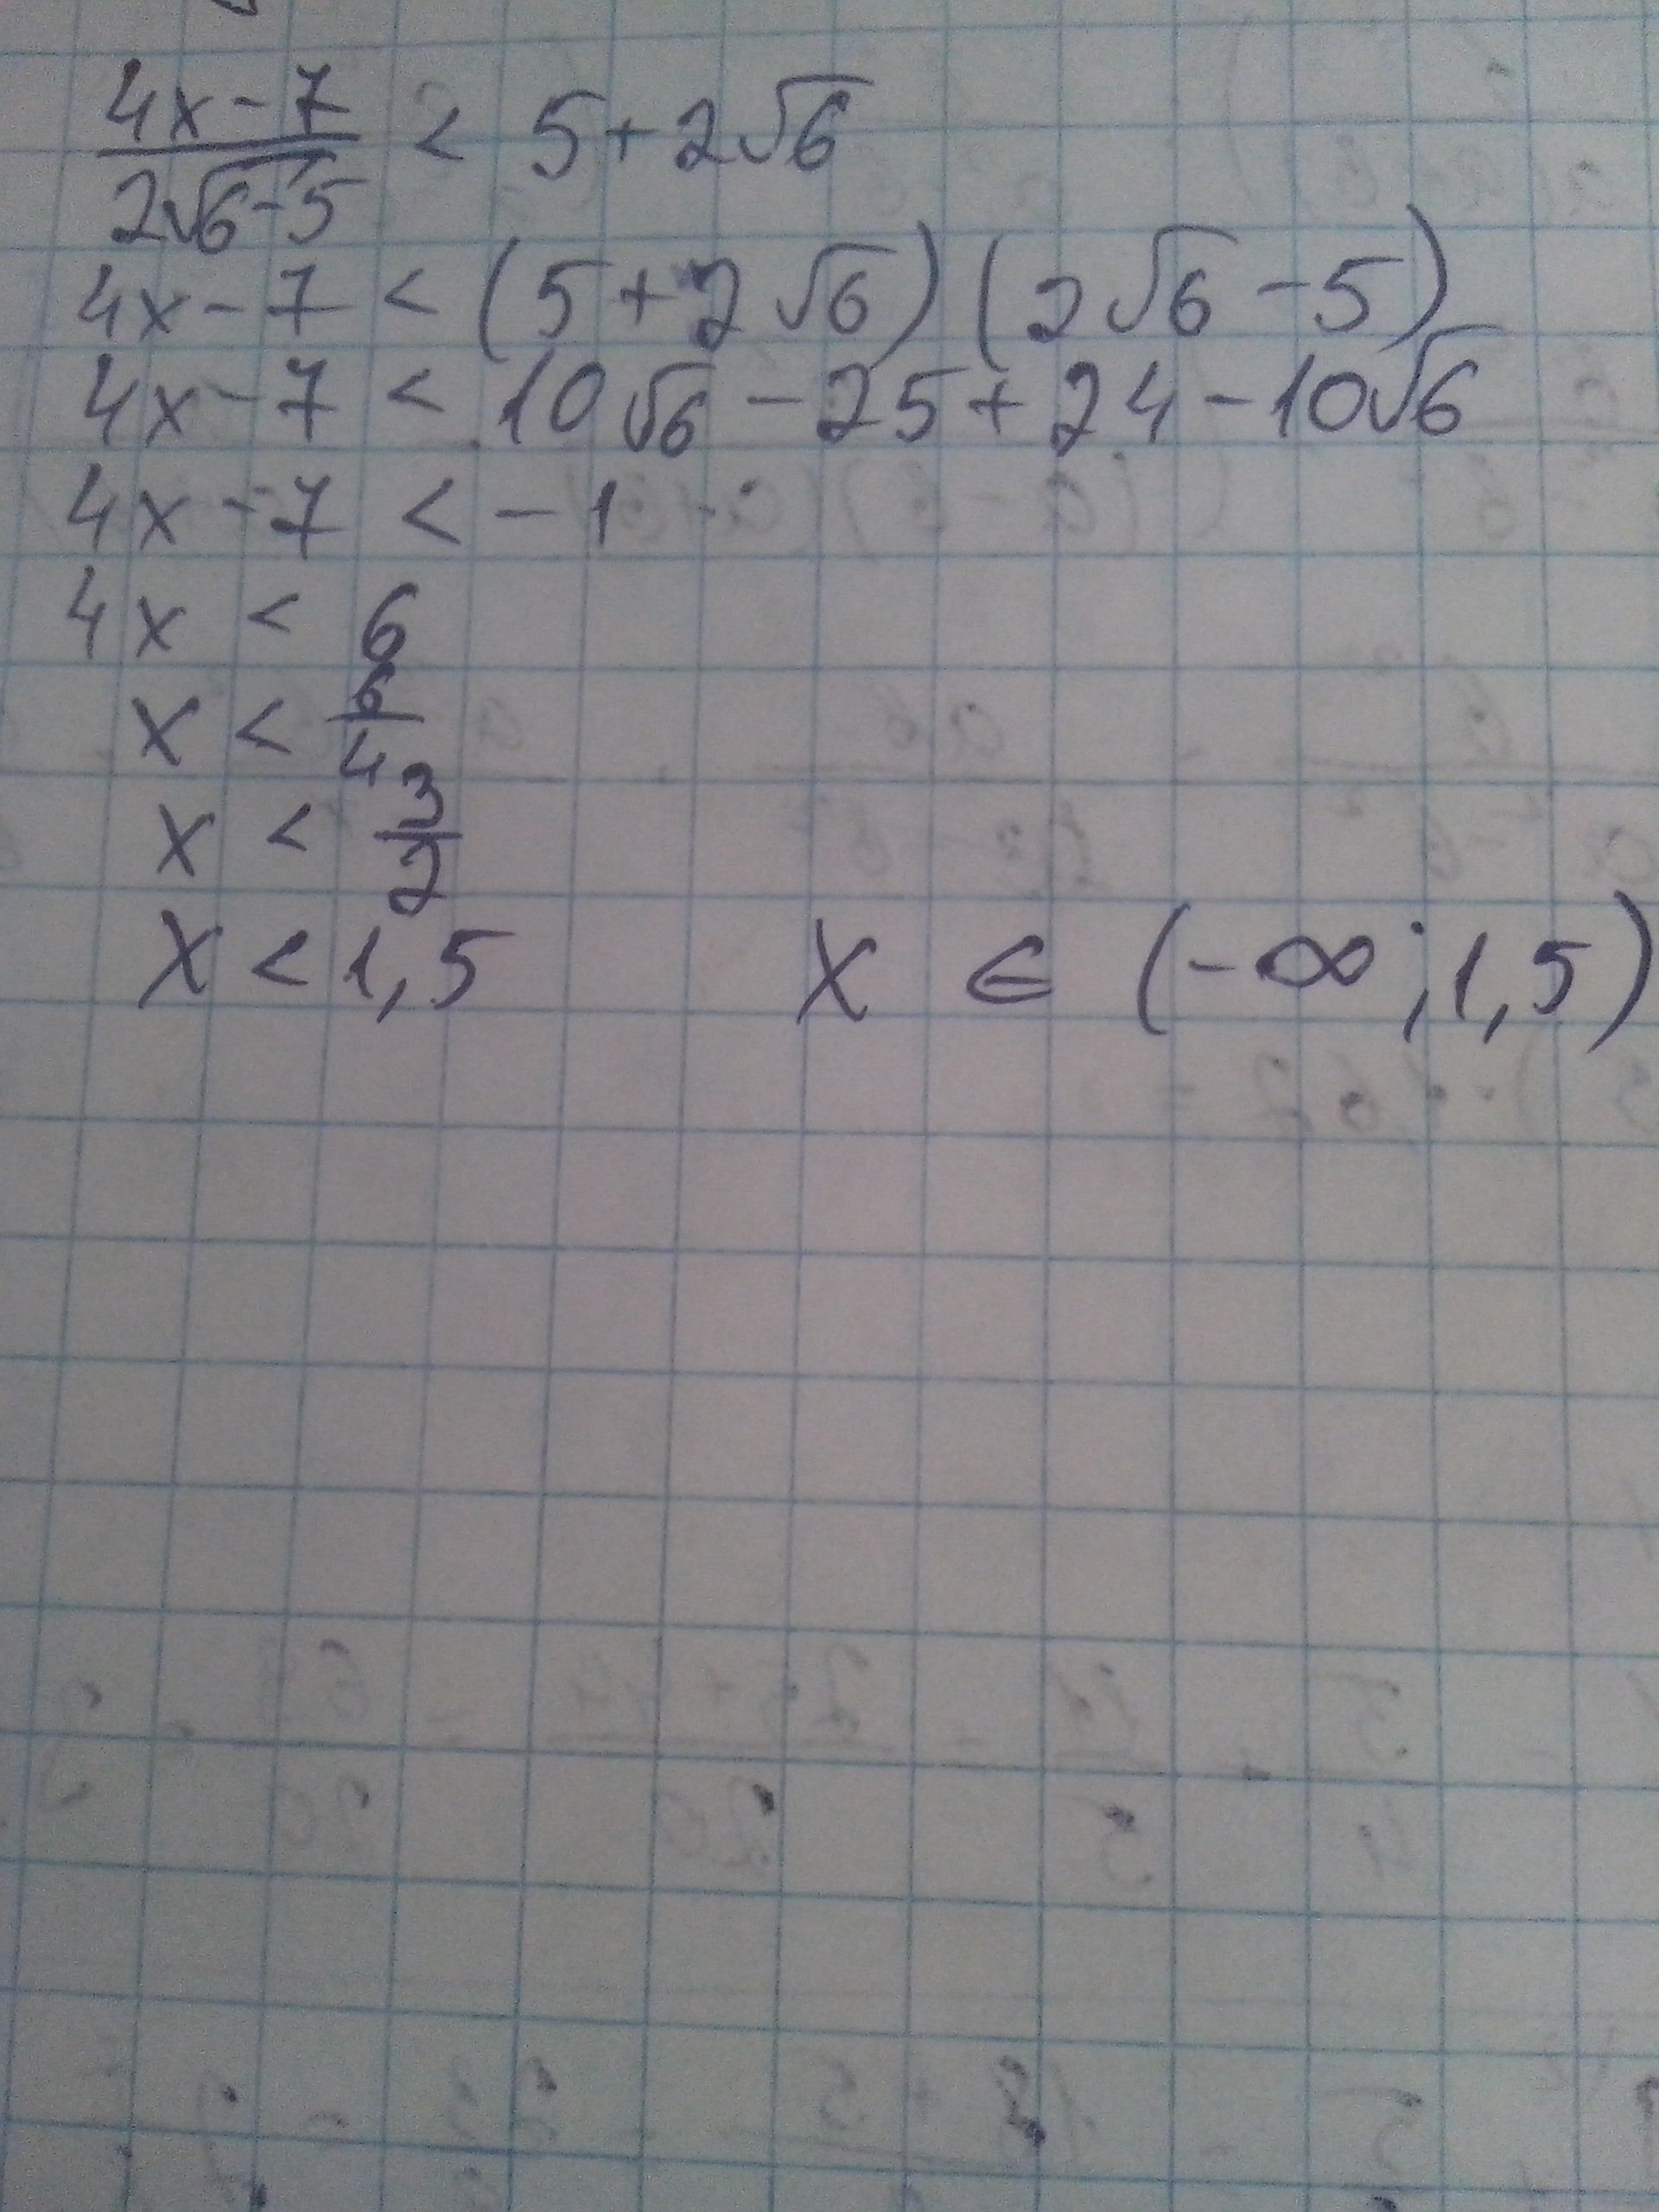 (4x-7)/(2√6-5) < 5+2√6
4x-7 < (5+2√6)(2√6-5)
4x-7 < 10√6-25+24-10√6
4x-7 < -1
4x < 6
x < 6/4
x < 3/2
x < 1,5    x ∈ (-∞;1,5)